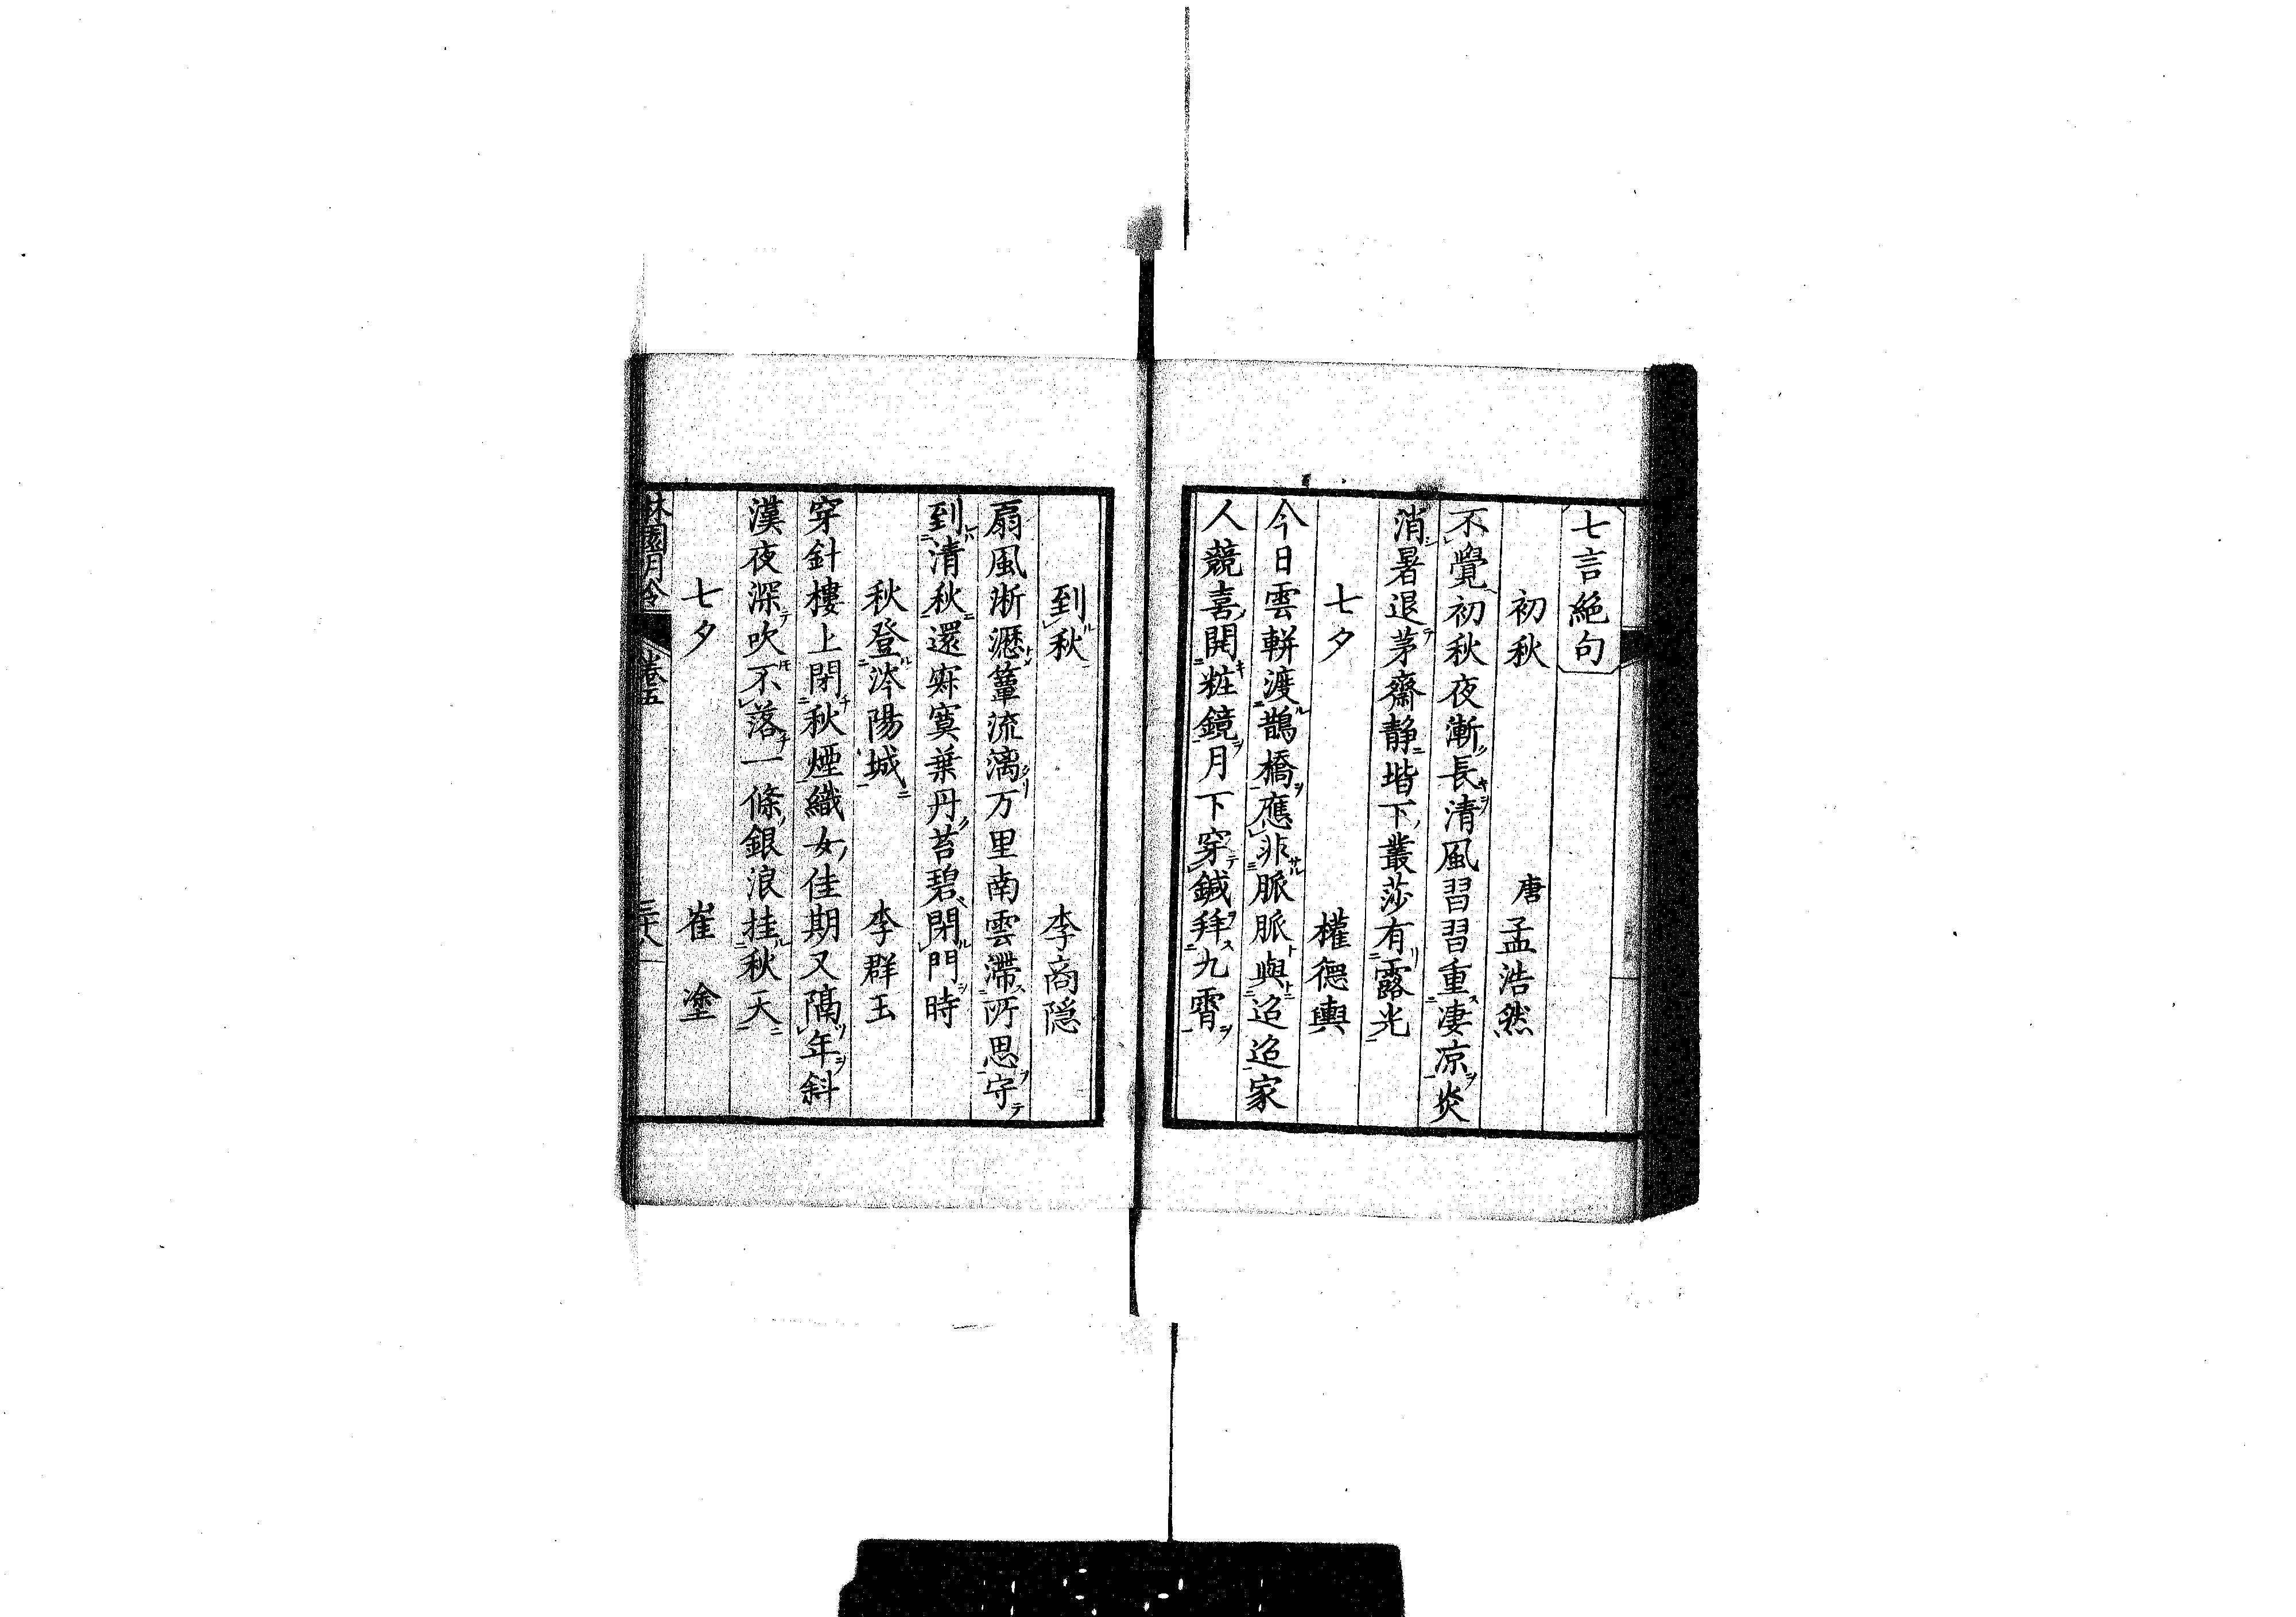 七言絶句
初秋　唐　孟浩然
不覺初秋夜漸長清風習習重凄凉炎
消暑退茅齋静堦下叢莎有露光
七夕　權德輿
今日雲軿渡鵲橋應非脈脈與迢迢家
人競喜開粧鏡月下穿鍼拜九霄
到秋　李商隠
扇風淅瀝簟流漓万里南雲滯所思守
到清秋還寂寞葉丹苔碧閉門時
秋登涔陽城　李群玉
穿針樓上閉秋煙織女佳期又隔年斜
漢夜深吹不落一條銀浪挂秋天
七夕　崔塗
林園月令　卷五　二十八